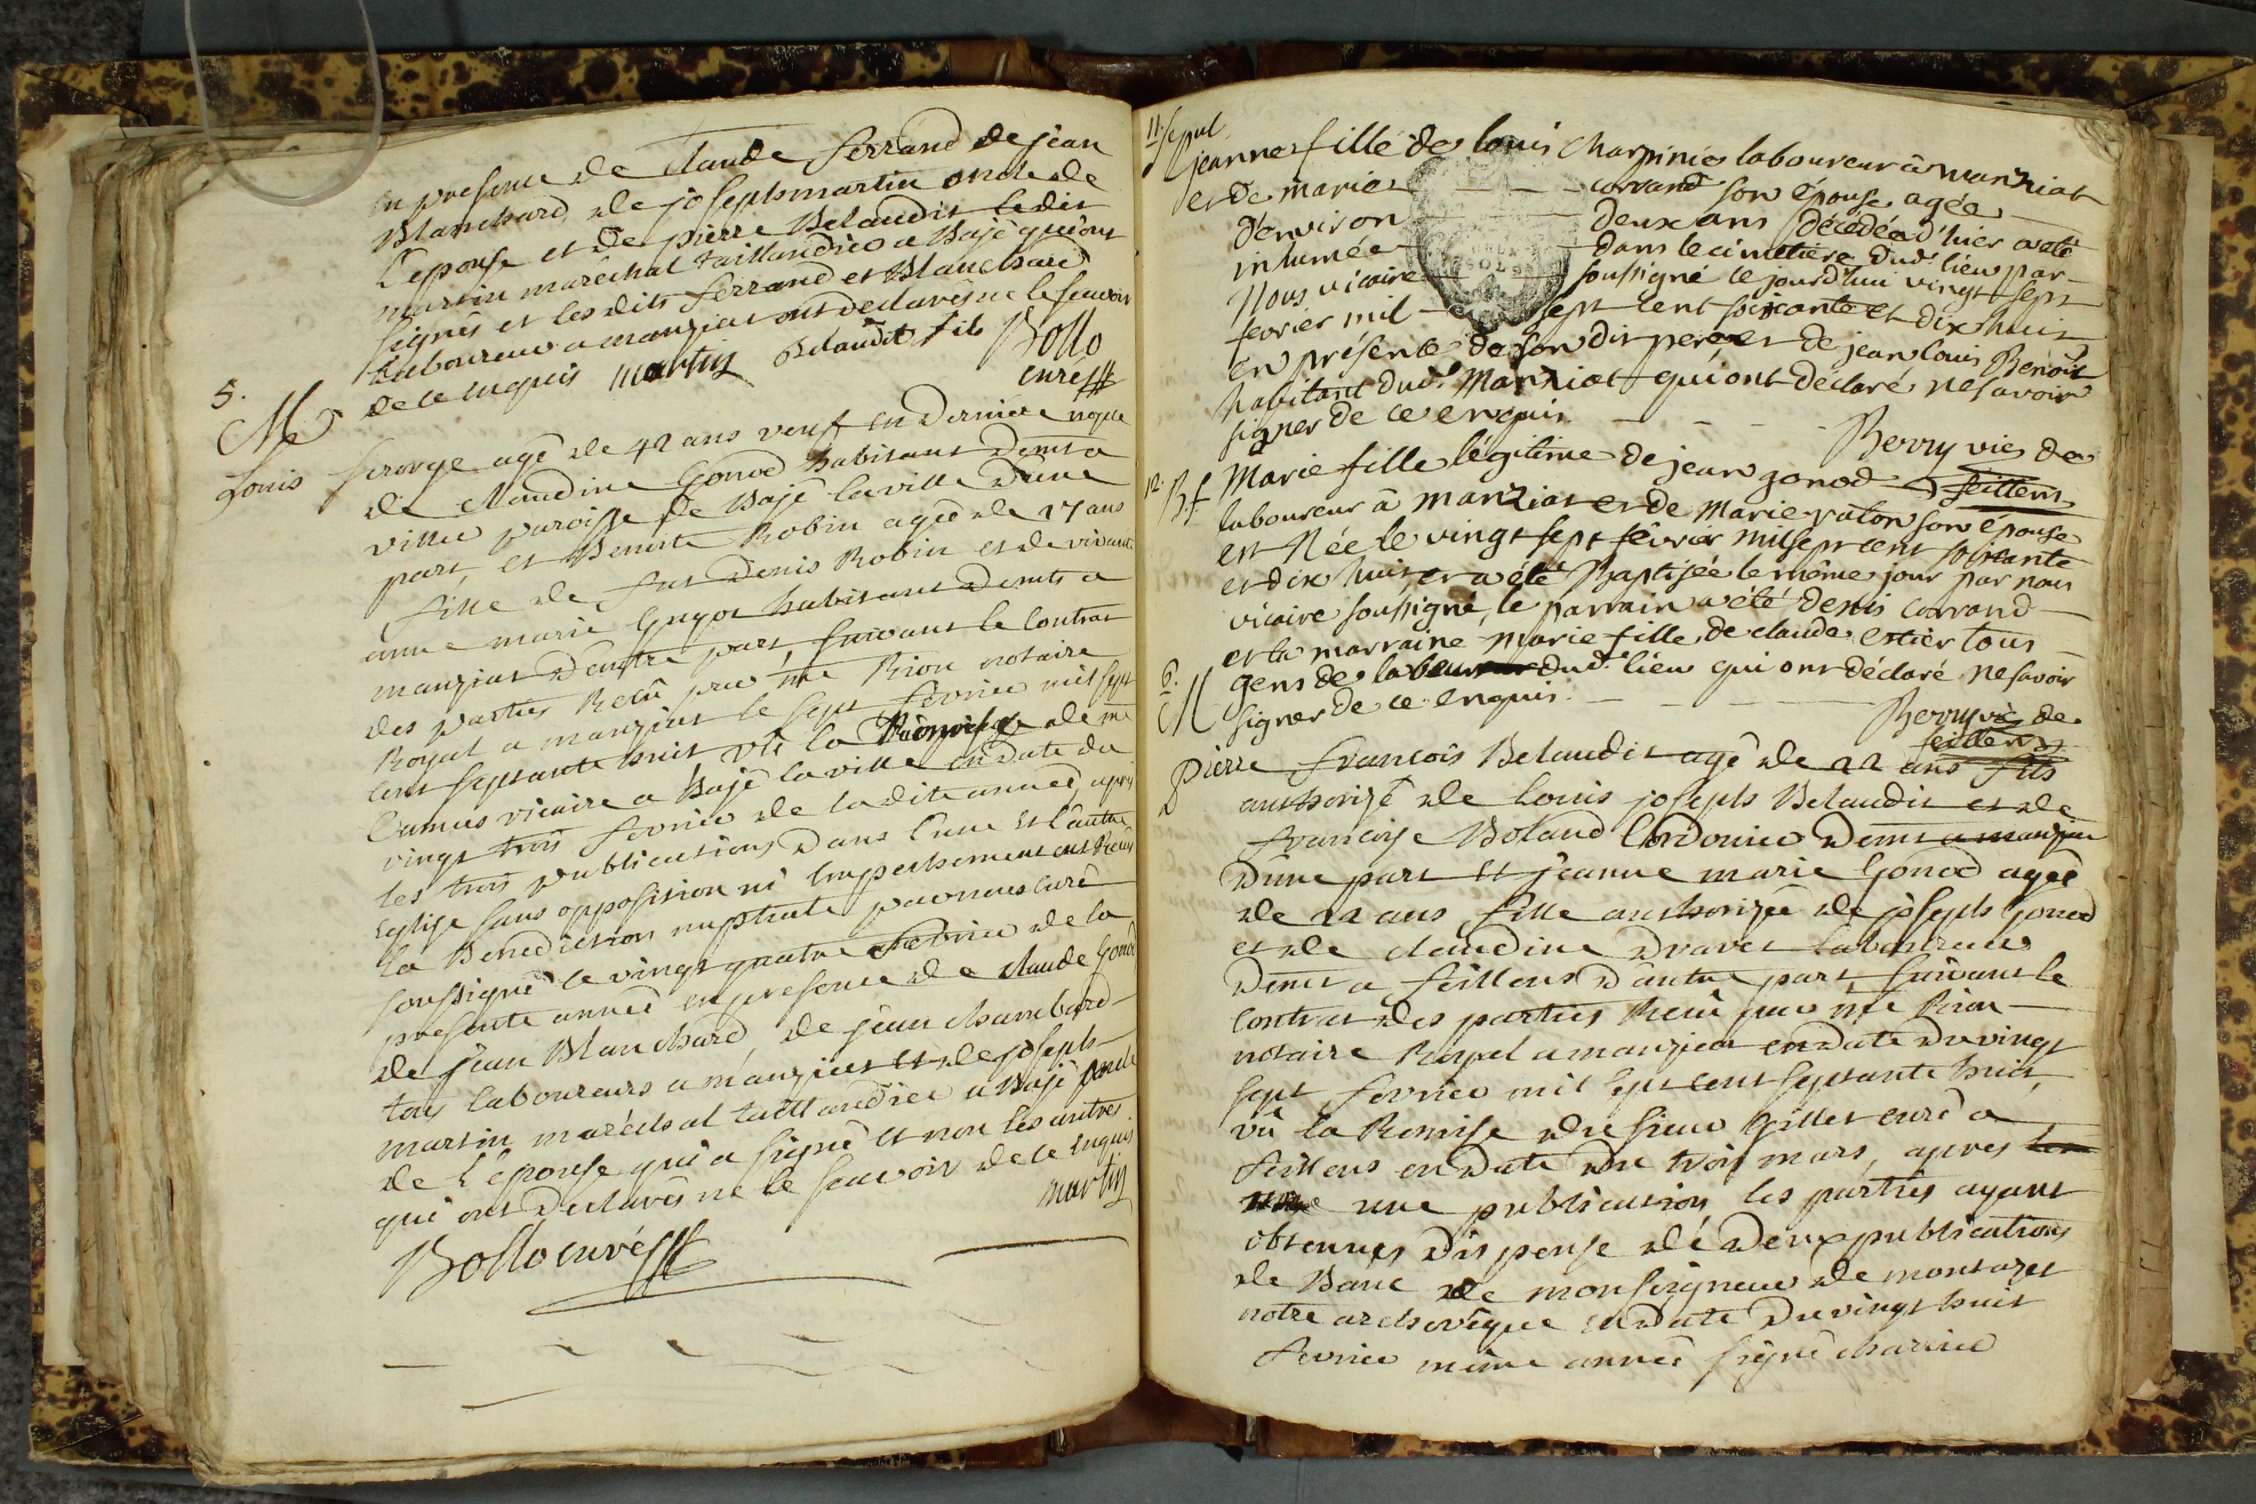 en presence de claude ferrand de jean
Blanchard, de joseph martin oncle de
l'epouse et de pierre Belaudit ledit
martin maréchal taillandier a Bajé qui ont
signés et les dits ferrand et Blanchard
laboureur a manziat ont declarés ne le scavoir
de ce enquis martin Belaudit fils Bollo
curé
5.
M
Louis feroye agé de 42 ans veuf en derniere nopce
de claudine Gonod habitant demt a
ville paroisse de Bajé la ville d'une
part, et Benoite Robin agée de 27 ans
fille de fut Denis Robin et de vivante
anne marie Guyot habitant demts a
manziat d'autre part, suivant le contrat
des parties Recû par me Rion notaire
Royal a manziat le sept fevrier mil sept
cent septante huit vû la Remise de mr
Camus vicaire a Bajé la ville en date du
vingt trois fevrier de la dite année, après
les trois publications dans l'une et l'autre
Eglise sans opposition ni Empechement ont Recus
la Benediction nuptiale par nous curé
soussigné le vingt quatre fevrier de la
presente année en presence de claude Gonod
de jean Blanchard, de jean chambard
tous laboureurs a manziat et de joseph
martin maréchal taillandier a Bajé oncle
de l'epouse qui a signé et non les autres
qui ont declarés ne le scavoir de ce enquis
martin
Bollo curé
11. sepul
jeanne fille de louis charpinie laboureur à manziat
et de marie corrand son épouse agée
d'environ deux ans décédée d'hier a été
inhumée dans le cimetiere dud. lieu par
nous vicaire soussigné ce jourd'hui vingt sept
fevrier mil sept cent soixante et dix huit
en présence de son dit pere et de jean louis Benoit
habitant dud. Manziat qui ont déclaré ne savoir
signer de ce enquis
Berry vic de
feillens
12. B.f
Marie fille légitime de jean gonod
laboureur à manziat et de Marie raton son épouse
est née le vingt sept fevrier mil sept cent soixante
et dix huit, et a été Baptisée le même jour par nous
vicaire soussigné, le parrain a été denis corrand
et la marraine marie fille de claude estier tous
gens de labeur dud. lieu qui ont déclaré ne savoir
signer de ce enquis.
Berry vic de
feillens
6.
M
Pierre François Belaudit agé de 22 ans fils
authorizé de Louis joseph Belaudit et de
françoise Boland Cordonier demt a manziat
d'une part et jeanne marie Gonod agée
de 22 ans fille authorizée de joseph Gonod
et de claudine Dravet laboureur
demt a feillens d'autre part, suivant le
contrat des parties Recû par me Rion
notaire Royal a manziat en date du vingt
sept fevrier mil sept cent septante huit,
vû la Remise du sieur Gillet curé a
feillens en date du trois mars, apres
une publication, les parties ayant
obtenues dispense de deux publications
de Banc de monseigneur de montazet
notre archevêque en date du vingt huit
fevrier même année signé